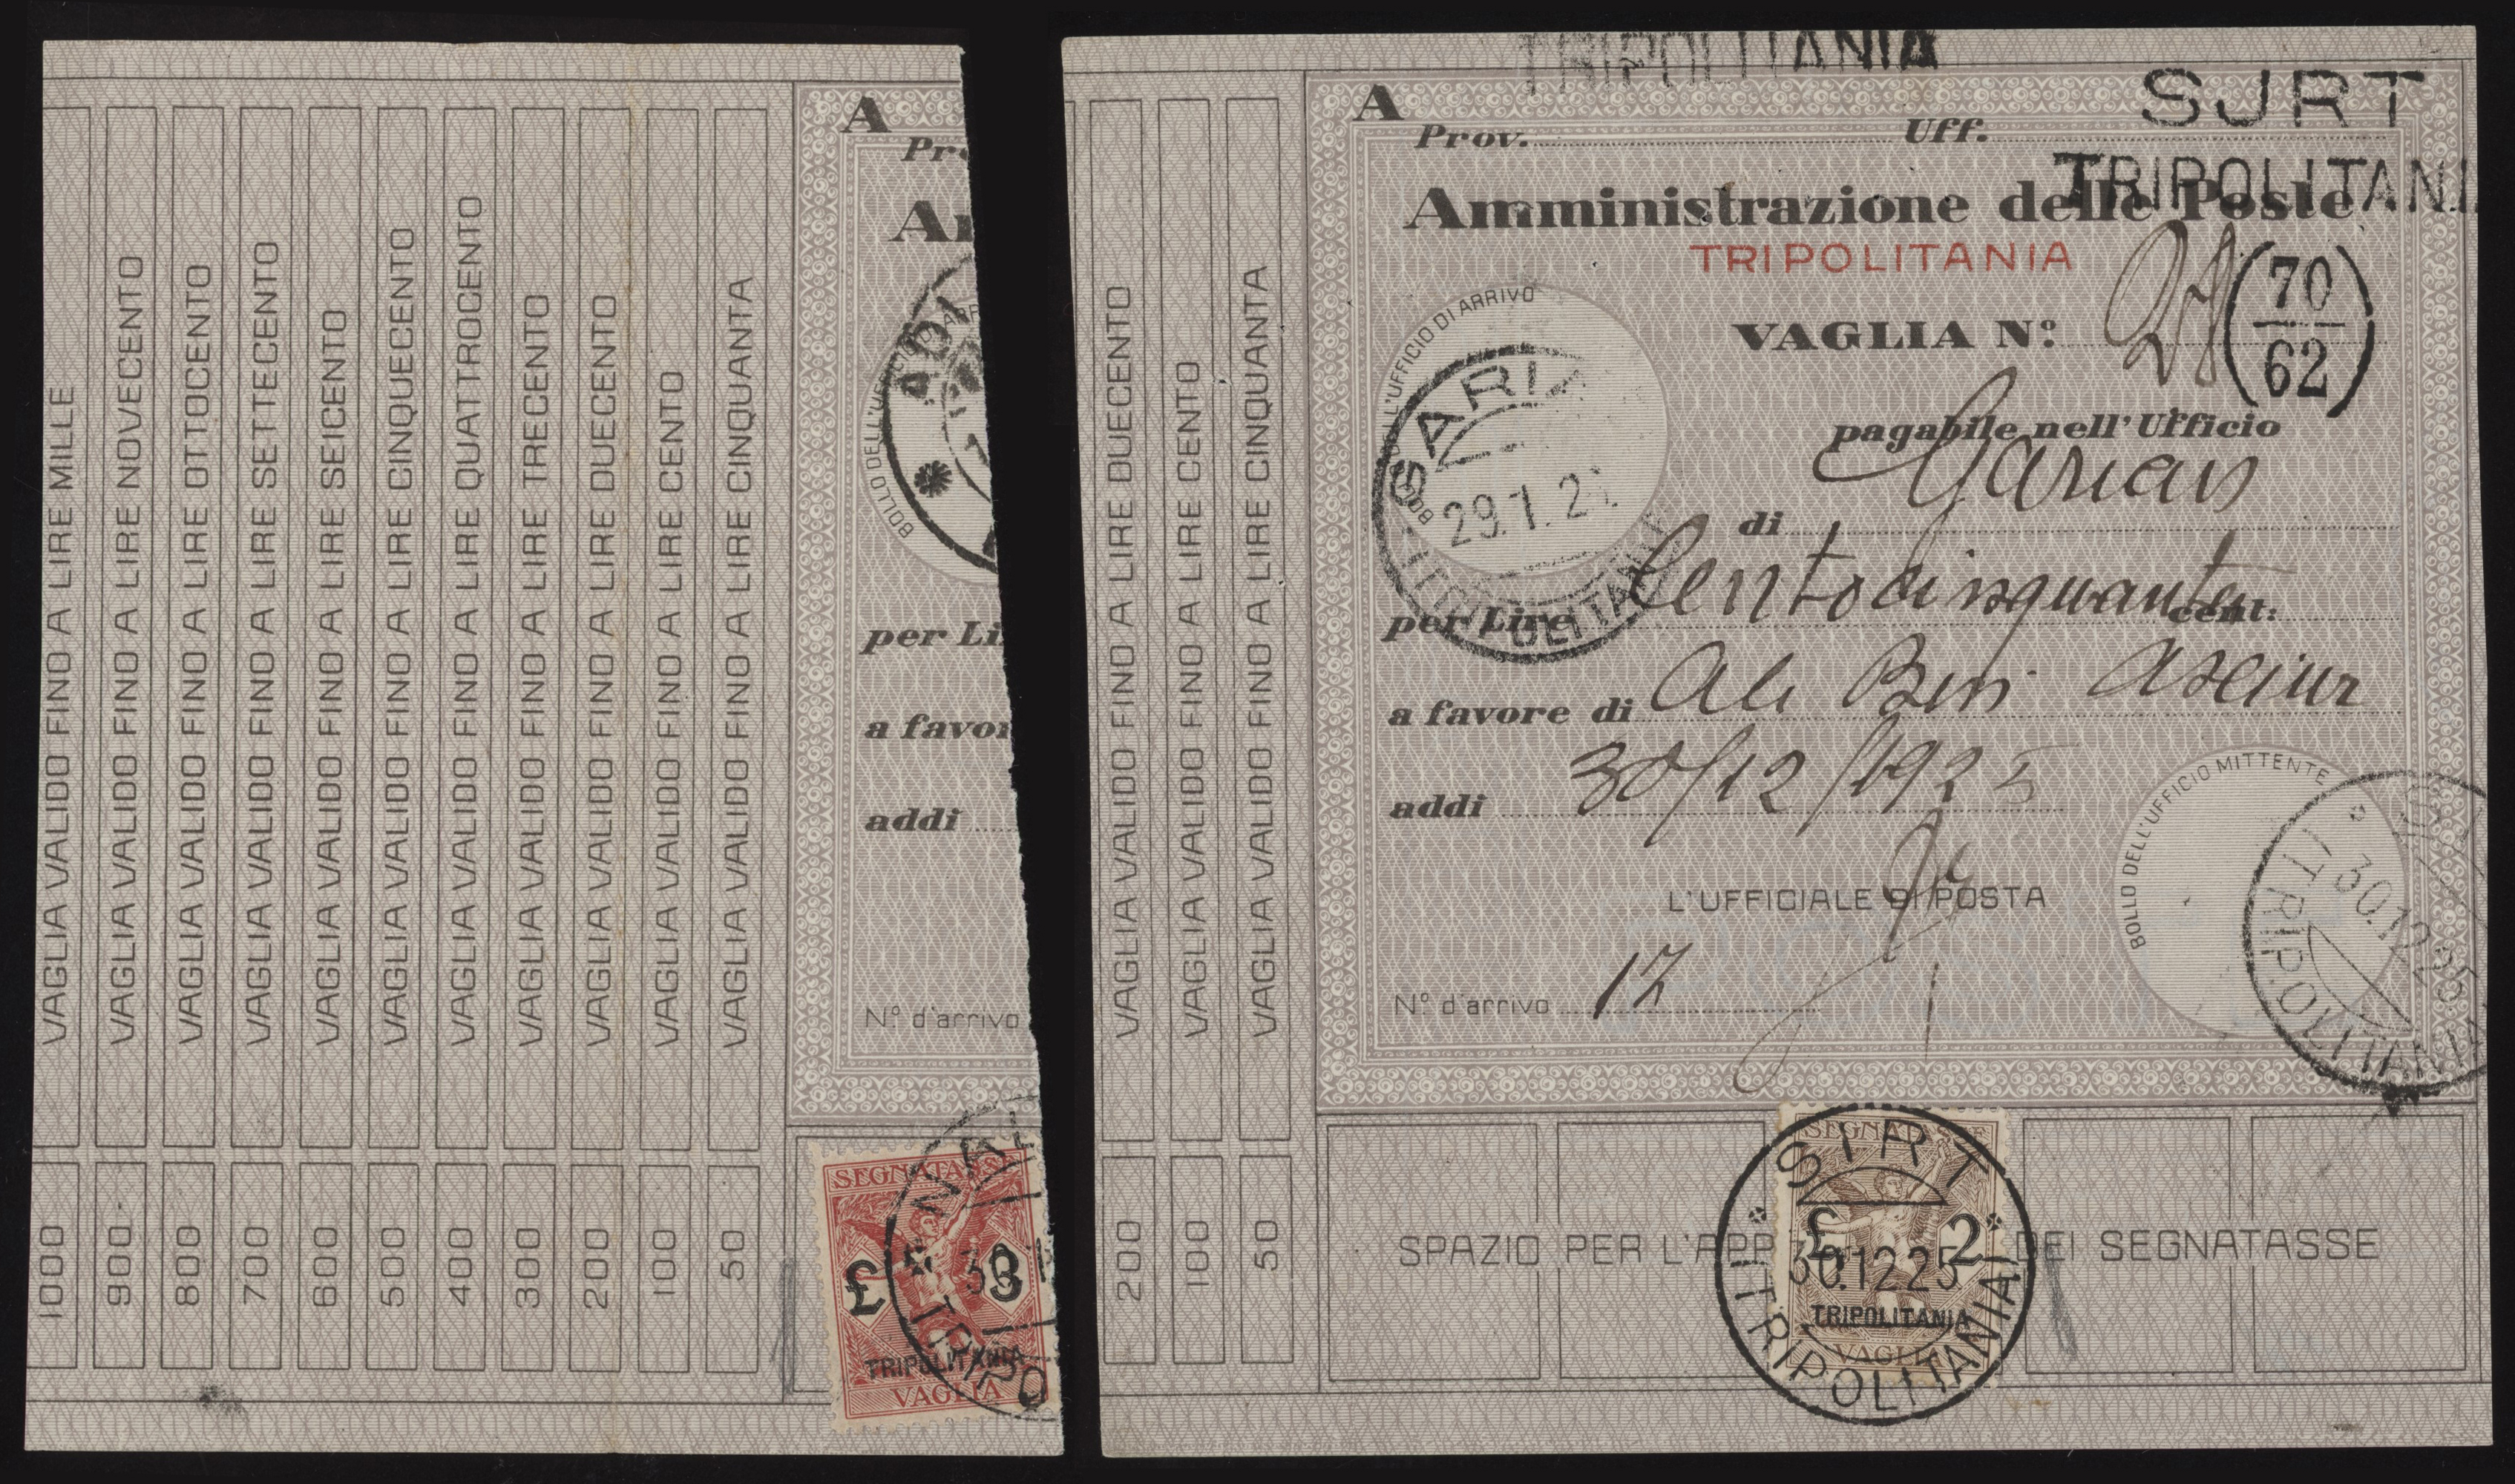 VAGLIA VALIDO FINO A LIRE MILLE
VAGLIA VALIDO FINO A LIRE NOVECENTO
VAGLIA VALIDO FINO A LIRE OTTOCENTO
VAGLIA VALIDO FINO A LIRE SETTECENTO
VAGLIA VALIDO FINO A LIRE SEICENTO
VAGLIA VALIDO FINO A LIRE CINQUECENTO
VAGLIA VALIDO FINO A LIRE QUATTROCENTO
VAGLIA VALIDO FINO A LIRE TRECENTO
VAGLIA VALIDO FINO A LIRE DUECENTO
VAGLIA VALIDO FINO A LIRE CENTO
VAGLIA VALIDO FINO A LIRE CINQUANTA
1000
900
800
700
600
500
400
300
200
100
50
A
per Li
a favor
addi
N.º d'arrivo
SEGNATASSE
£ 3
TRIPOLITANIA
VAGLIA
VAGLIA VALIDO FINO A LIRE DUECENTO
VAGLIA VALIDO FINO A LIRE CENTO
VAGLIA VALIDO FINO A LIRE CINQUANTA
200
100
50
TRIPOLITANIA
SJRT
A
Prov. Uff.
TRIPOLITANI
Amministrazione delle Poste
TRIPOLITANIA
BOLLO DELL'UFFICIO DI ARRIVO
VAGLIA N.º 28
70
62
pagabile nell'Ufficio
di Garian
GARI
29.1.2
per Lire Centocinquanta cent:
a favore di Ali Ben Asciur
addi 30/12/1925
BOLLO DELL'UFFICIO MITTENTE
30.12.25
TRIPOLITANIA
L'UFFICIALE DI POSTA
N.º d'arrivo 12
SPAZIO PER L'APP DEI SEGNATASSE
SIRT
SEGNATASSE
£ 2
30.12.25
TRIPOLITANIA
VAGLIA
(TRIPOLITANIA)